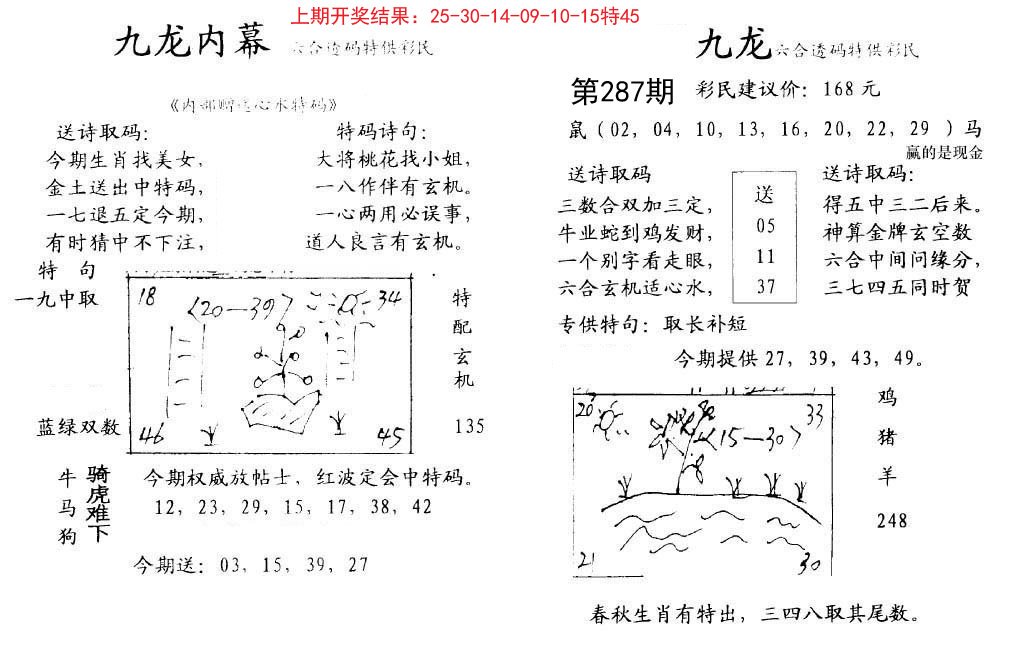 上期开奖结果：25-30-14-09-10-15特45
九龙内幕 六合透码特供彩民
《内部赠送心水特码》
送诗取码：
今期生肖找美女，
金土送出中特码，
一七退五定今期，
有时猜中不下注，
特码诗句：
大将桃花找小姐，
一八作伴有玄机。
一心两用必误事，
道人良言有玄机。
特 句
一九中取
蓝绿双数
18
〈20—39〉
34
46
45
特
配
玄
机
135
牛
马
狗
骑
虎
难
下
今期权威放帖士，红波定会中特码。
12，23，29，15，17，38，42
今期送：03，15，39，27
九龙六合透码特供彩民
第287期 彩民建议价：168元
鼠（02，04，10，13，16，20，22，29 ）马
赢的是现金
送诗取码
三数合双加三定，
牛业蛇到鸡发财，
一个别字看走眼，
六合玄机适心水，
送
05
11
37
送诗取码：
得五中三二后来。
神算金牌玄空数
六合中间问缘分，
三七四五同时贺
专供特句：取长补短
今期提供27，39，43，49。
20
33
〈15—30〉
21
30
鸡
猪
羊
248
春秋生肖有特出，三四八取其尾数。